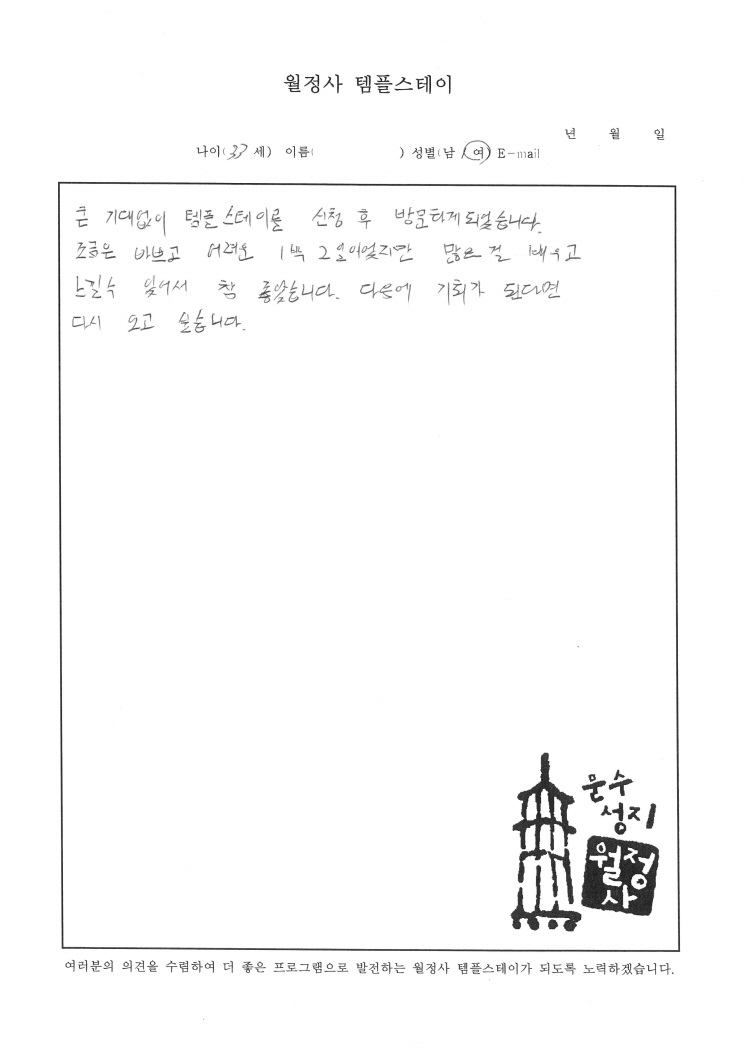 월정사 템플스테이
년 월 일
나이(37 세) 이름( ) 성별(남 / 여) E-mail
큰 기대없이 템플스테이를 신청 후 방문하게되었습니다.
조금은 바쁘고 어려운 1박 2일이었지만 많은 걸 배우고
느낄수 있어서 참 좋았습니다. 다음에 기회가 된다면
다시 오고 싶습니다.
문수
성지
월정
사
여러분의 의견을 수렴하여 더 좋은 프로그램으로 발전하는 월정사 템플스테이가 되도록 노력하겠습니다.